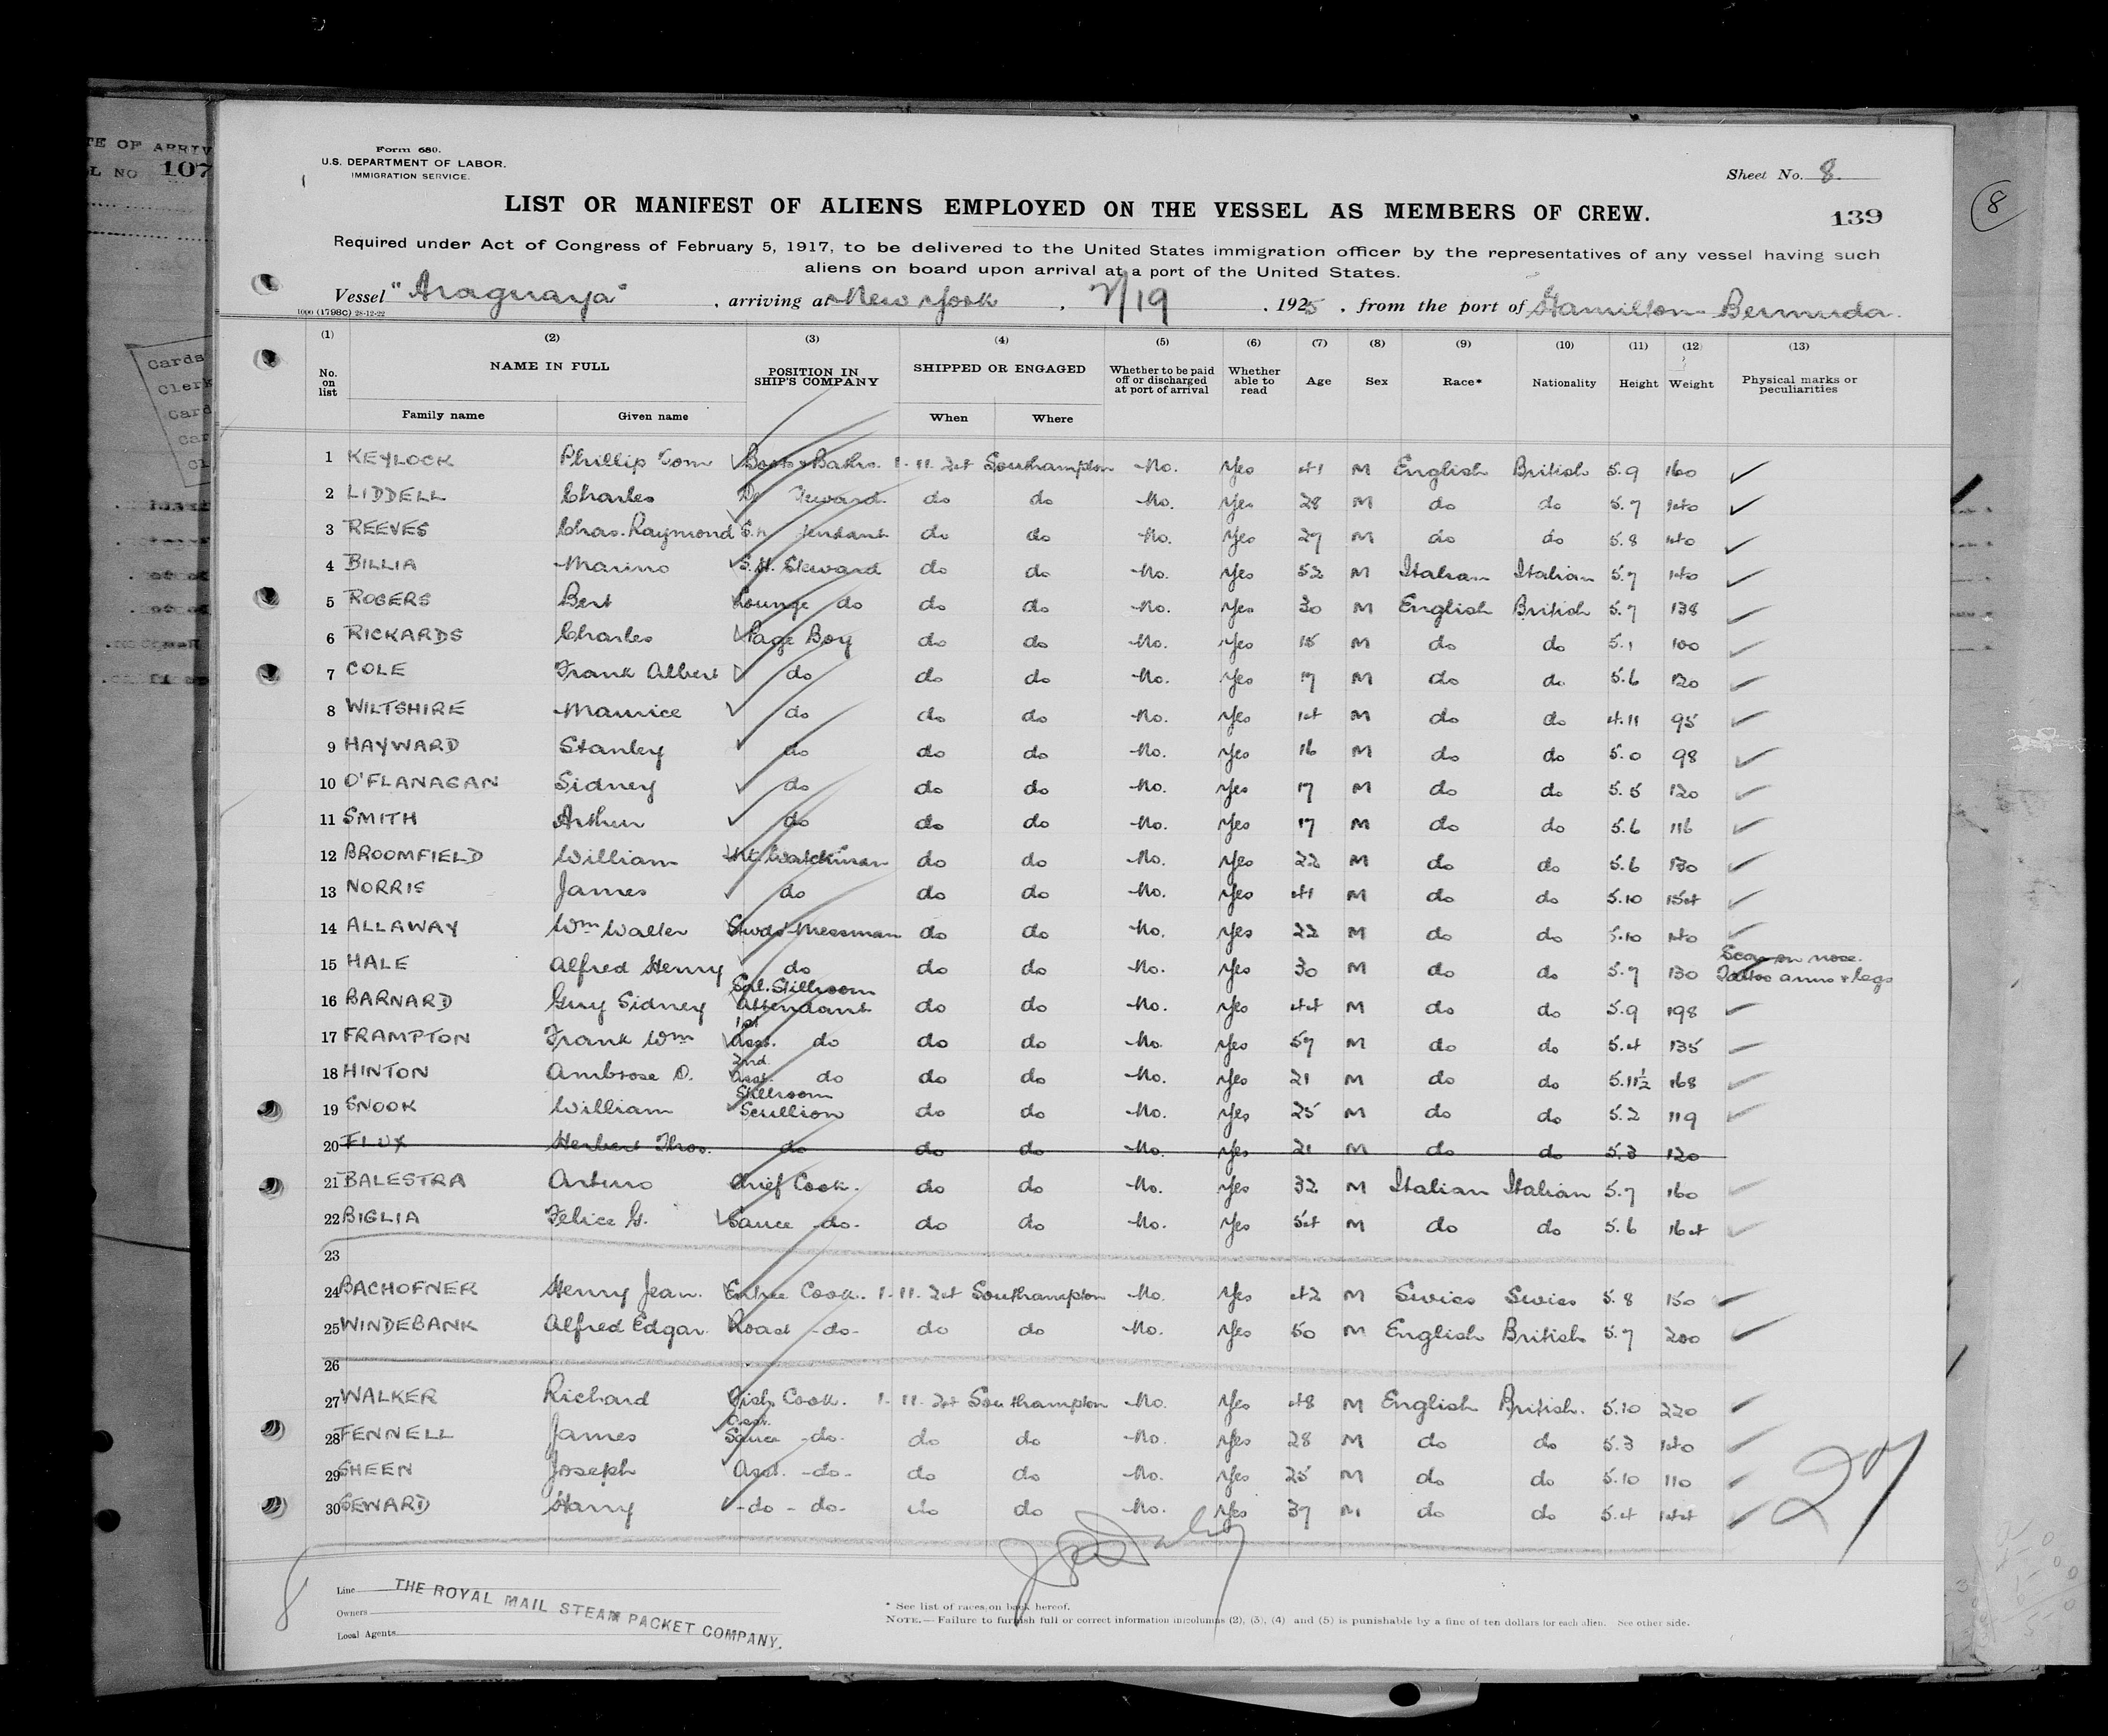 TE OF ARRIV
L NO 107
Cards
Clerk
Card
Car
Cl
Form 680.
U.S. DEPARTMENT OF LABOR.
IMMIGRATION SERVICE.
Sheet No. 8.
8
LIST OR MANIFEST OF ALIENS EMPLOYED ON THE VESSEL AS MEMBERS OF CREW.
139
Required under Act of Congress of February 5, 1917, to be delivered to the United States immigration officer by the representatives of any vessel having such
aliens on board upon arrival at a port of the United States.
Vessel "Araguaya", arriving at New York, 2/19, 1925, from the port of Hamilton Bermuda.
1000 (1798c) 28-12-22
(1) (2) (3) (4) (5) (6) (7) (8) (9) (10) (11) (12) (13)
No. on list NAME IN FULL POSITION IN SHIP'S COMPANY SHIPPED OR ENGAGED Whether to be paid off or discharged at port of arrival Whether able to read Age Sex Race* Nationality Height Weight Physical marks or peculiarities
Family name Given name When Where
1 KEYLOCK Phillip Tom Boots & Baths. 1.11.24 Southampton No. Yes 41 M English British 5.9 160
2 LIDDELL Charles Steward do do No. Yes 28 M do do 5.7 140
3 REEVES Chas. Raymond do do No. Yes 29 M do do 5.8 140
4 BILLIA Marino S.H. Steward do do No. Yes 52 M Italian Italian 5.7 140
5 ROGERS Bert Lounge do do do No. Yes 30 M English British 5.7 138
6 RICKARDS Charles Page Boy do do No. Yes 15 M do do 5.1 100
7 COLE Frank Albert do do do No. Yes 17 M do do 5.6 120
8 WILTSHIRE Maurice do do do No. Yes 14 M do do 4.11 95
9 HAYWARD Stanley do do do No. Yes 16 M do do 5.0 98
10 O'FLANAGAN Sidney do do do No. Yes 17 M do do 5.5 120
11 SMITH Arthur do do do No. Yes 17 M do do 5.6 116
12 BROOMFIELD William Nt. Watchman do do No. Yes 22 M do do 5.6 130
13 NORRIS James do do do No. Yes 41 M do do 5.10 154
14 ALLAWAY Wm Walter Stwds' Messman do do No. Yes 22 M do do 5.10 140
15 HALE Alfred Henry do do do No. Yes 30 M do do 5.7 130 Scar on nose. Tattoo arms & legs
16 BARNARD Guy Sidney Sal. Stillroom Attendant do do No. Yes 44 M do do 5.9 198
17 FRAMPTON Frank Wm 1st Asst. do do do No. Yes 57 M do do 5.4 135
18 HINTON Ambrose D. 2nd Asst. do do do No. Yes 21 M do do 5.11½ 168
19 SNOOK William Stillroom Scullion do do No. Yes 25 M do do 5.2 119
20 FLUX Herbert Thos. do do do No. Yes 21 M do do 5.3 120
21 BALESTRA Arturo Chief Cook. do do No. Yes 32 M Italian Italian 5.7 160
22 BIGLIA Felice G. Sauce -do- do do No. Yes 54 M do do 5.6 164
23
24 BACHOFNER Henry Jean. Entree Cook. 1.11.24 Southampton No. Yes 42 M Swiss Swiss 5.8 150
25 WINDEBANK Alfred Edgar. Roast -do- do do No. Yes 50 M English British 5.7 200
26
27 WALKER Richard Fish Cook. 1.11.24 Southampton No. Yes 48 M English British. 5.10 220
28 FENNELL James Asst. Sauce -do- do do No. Yes 28 M do do 5.3 140
29 SHEEN Joseph Asst. -do- do do No. Yes 25 M do do 5.10 110
30 SEWARD Harry -do- do- do do No. Yes 37 M do do 5.4 144
27
8
Line
Owners
Local Agents
THE ROYAL MAIL STEAM PACKET COMPANY.
* See list of races on back hereof.
NOTE.—Failure to furnish full or correct information in columns (2), (3), (4) and (5) is punishable by a fine of ten dollars for each alien. See other side.